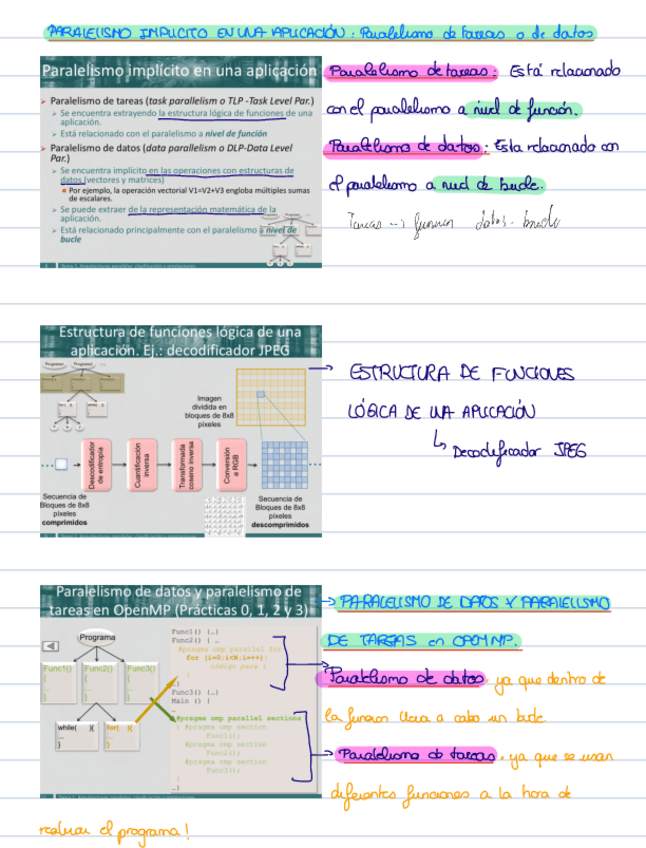 PARALELISMO IMPLICITO EN UNA APLICACIÓN: Paralelismo de tareas o de datos
Paralelismo implícito en una aplicación
Paralelismo de tareas (task parallelism o TLP -Task Level Par.)
Se encuentra extrayendo la estructura lógica de funciones de una
aplicación.
Está relacionado con el paralelismo a nivel de función
Paralelismo de datos (data parallelism o DLP-Data Level
Par.)
Se encuentra implícito en las operaciones con estructuras de
datos (vectores y matrices)
Por ejemplo, la operación vectorial V1=V2+V3 engloba múltiples sumas
de escalares.
Se puede extraer de la representación matemática de la
aplicación.
Está relacionado principalmente con el paralelismo a nivel de
bucle
Paralelismo de tareas: Está relacionado
con el paralelismo a nivel de función.
Paralelismo de datos: Esta relacionado con
el paralelismo a nivel de bucle.
Tareas --> funcion datos - bucle
Estructura de funciones lógica de una
aplicación. Ej.: decodificador JPEG
Imagen
dividida en
bloques de 8x8
píxeles
Descodificador
de entropía
Cuantificación
inversa
Transformada
coseno inversa
Conversión
a RGB
Secuencia de
Bloques de 8x8
píxeles
comprimidos
Secuencia de
Bloques de 8x8
píxeles
descomprimidos
ESTRUCTURA DE FUNCIONES
LÓGICA DE UNA APLICACIÓN
↳ Decodificador JPEG
Paralelismo de datos y paralelismo de
tareas en OpenMP (Prácticas 0, 1, 2 y 3)
Programa
Func1()
{
...
}
Func2()
{
...
}
Func3()
{
...
}
while( ){
...
}
for( ){
...
}
Func1() {…}
Func2() { …
#pragma omp parallel for
for (i=0;i<N;i++){
código para i
}
…}
Func3() {…}
Main () {
…
#pragma omp parallel sections
{ #pragma omp section
Func1();
#pragma omp section
Func2();
#pragma omp section
Func3();
}
…}
→ PARALELISMO DE DATOS Y PARALELISMO
DE TAREAS en OPENMP.
Paralelismo de datos, ya que dentro de
la funcion lleva a cabo un bucle
Paralelismo de tareas, ya que se usan
diferentes funciones a la hora de
realizar el programa!